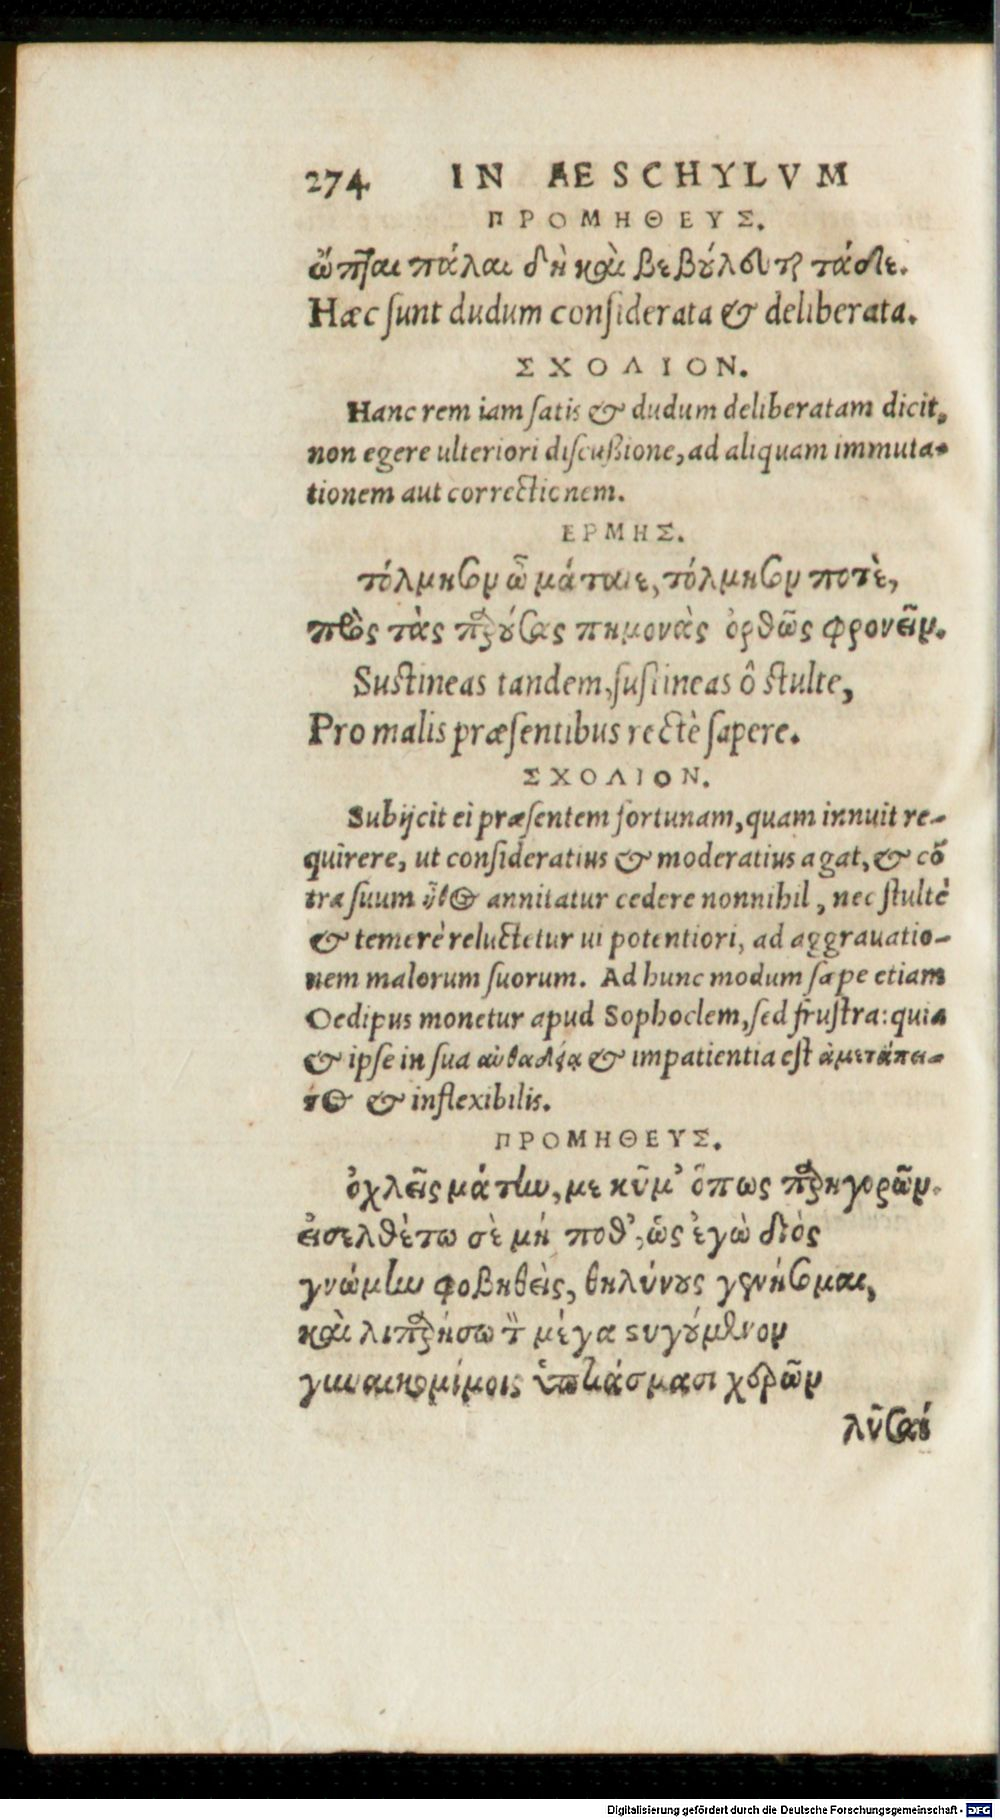 274 IN AESCHYLVM
ΠΡΟΜΗΘΕΥΣ.
ὤπται πάλαι δὴ καὶ βεβούλευται τάδε.
Hæc sunt dudum considerata & deliberata.
ΣΧΟΛΙΟΝ.
Hanc rem iam satis & dudum deliberatam dicit,
non egere ulteriori discußione, ad aliquam immuta-
tionem aut correctionem.
ΕΡΜΗΣ.
τόλμησον ὦ μάταιε, τόλμησον ποτὲ,
πρὸς τὰς παρούσας πημονὰς ὀρθῶς φρονεῖν.
Sustineas tandem, sustineas ô stulte,
Pro malis præsentibus rectè sapere.
ΣΧΟΛΙΟΝ.
Subijcit ei præsentem fortunam, quam innuit re-
quirere, ut consideratius & moderatius agat, & cō
tra suum ἦθος annitatur cedere nonnihil, nec stultè
& temerè reluctetur ui potentiori, ad aggrauatio-
nem malorum suorum. Ad hunc modum sæpe etiam
Oedipus monetur apud Sophoclem, sed frustra: quia
& ipse in sua αὐθαδείᾳ & impatientia est ἀμετάπει-
τος & inflexibilis.
ΠΡΟΜΗΘΕΥΣ.
ὀχλεῖς μάτην, με κῦμ' ὅπως παρηγορῶν.
εἰσελθέτω σὲ μή ποθ', ὡς ἐγὼ διὸς
γνώμην φοβηθεὶς, θηλύνους γενήσομαι,
καὶ λιπαρήσω τὸν μέγα στυγούμενον
γυναικομίμοις ὑπτιάσμασι χερῶν
λῦσαί